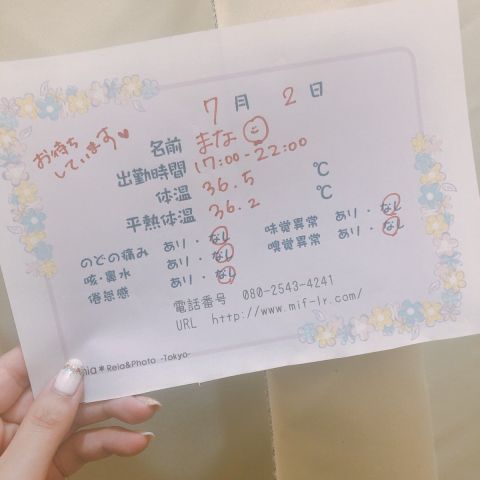 7月 2日
お待ち
しています♥
名前 まな
出勤時間 17:00-22:00
体温 36.5 ℃
平熱体温 36.2 ℃
のどの痛み あり・なし
咳・鼻水 あり・なし
倦怠感 あり・なし
味覚異常 あり・なし
嗅覚異常 あり・なし
電話番号 080-2543-4241
URL http://www.mif-lr.com/
Rela&Photo -Tokyo-